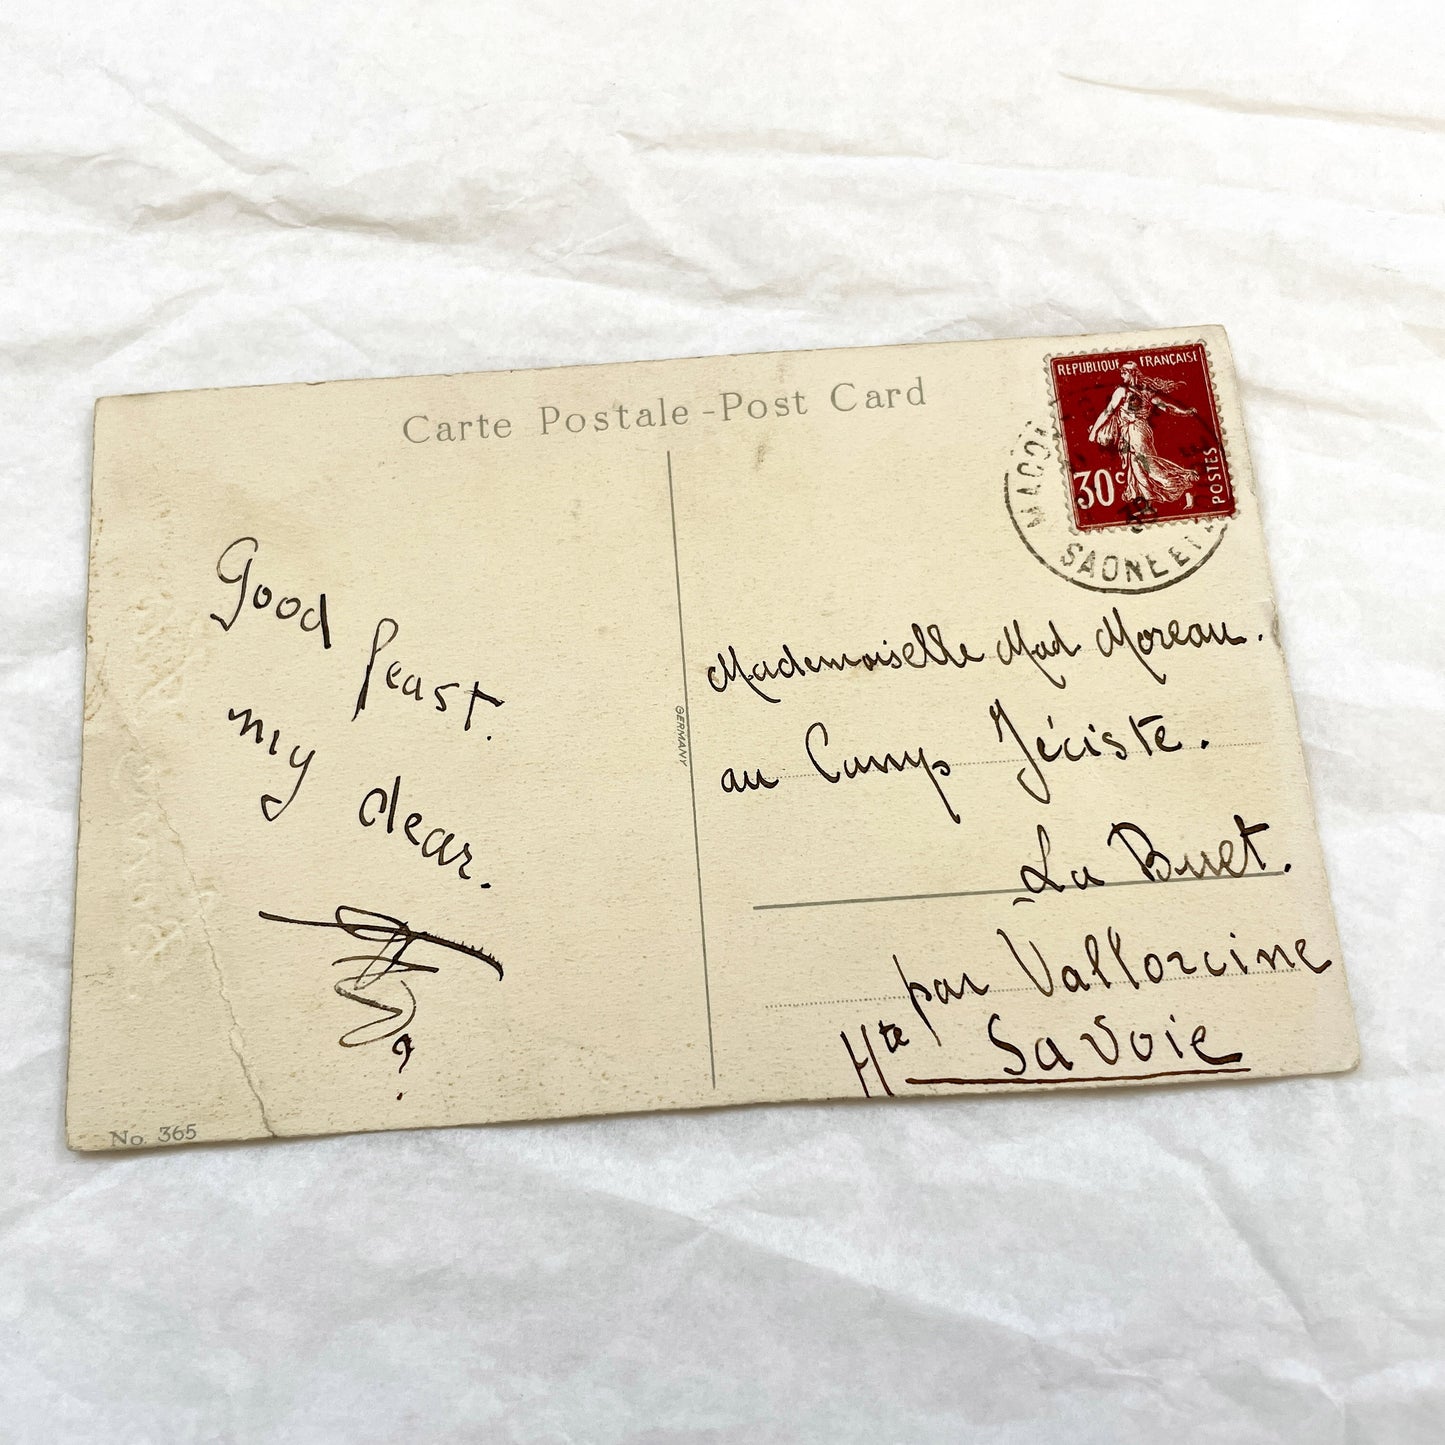 Carte Postale - Post Card
REPUBLIQUE FRANÇAISE
30c
POSTES
MACON
SAONE ET
Good feast.
my dear.
GERMANY
Mademoiselle Mad Moreau.
au Camp Jéciste.
La Buet.
par Vallorcine
Hte Savoie
No. 365